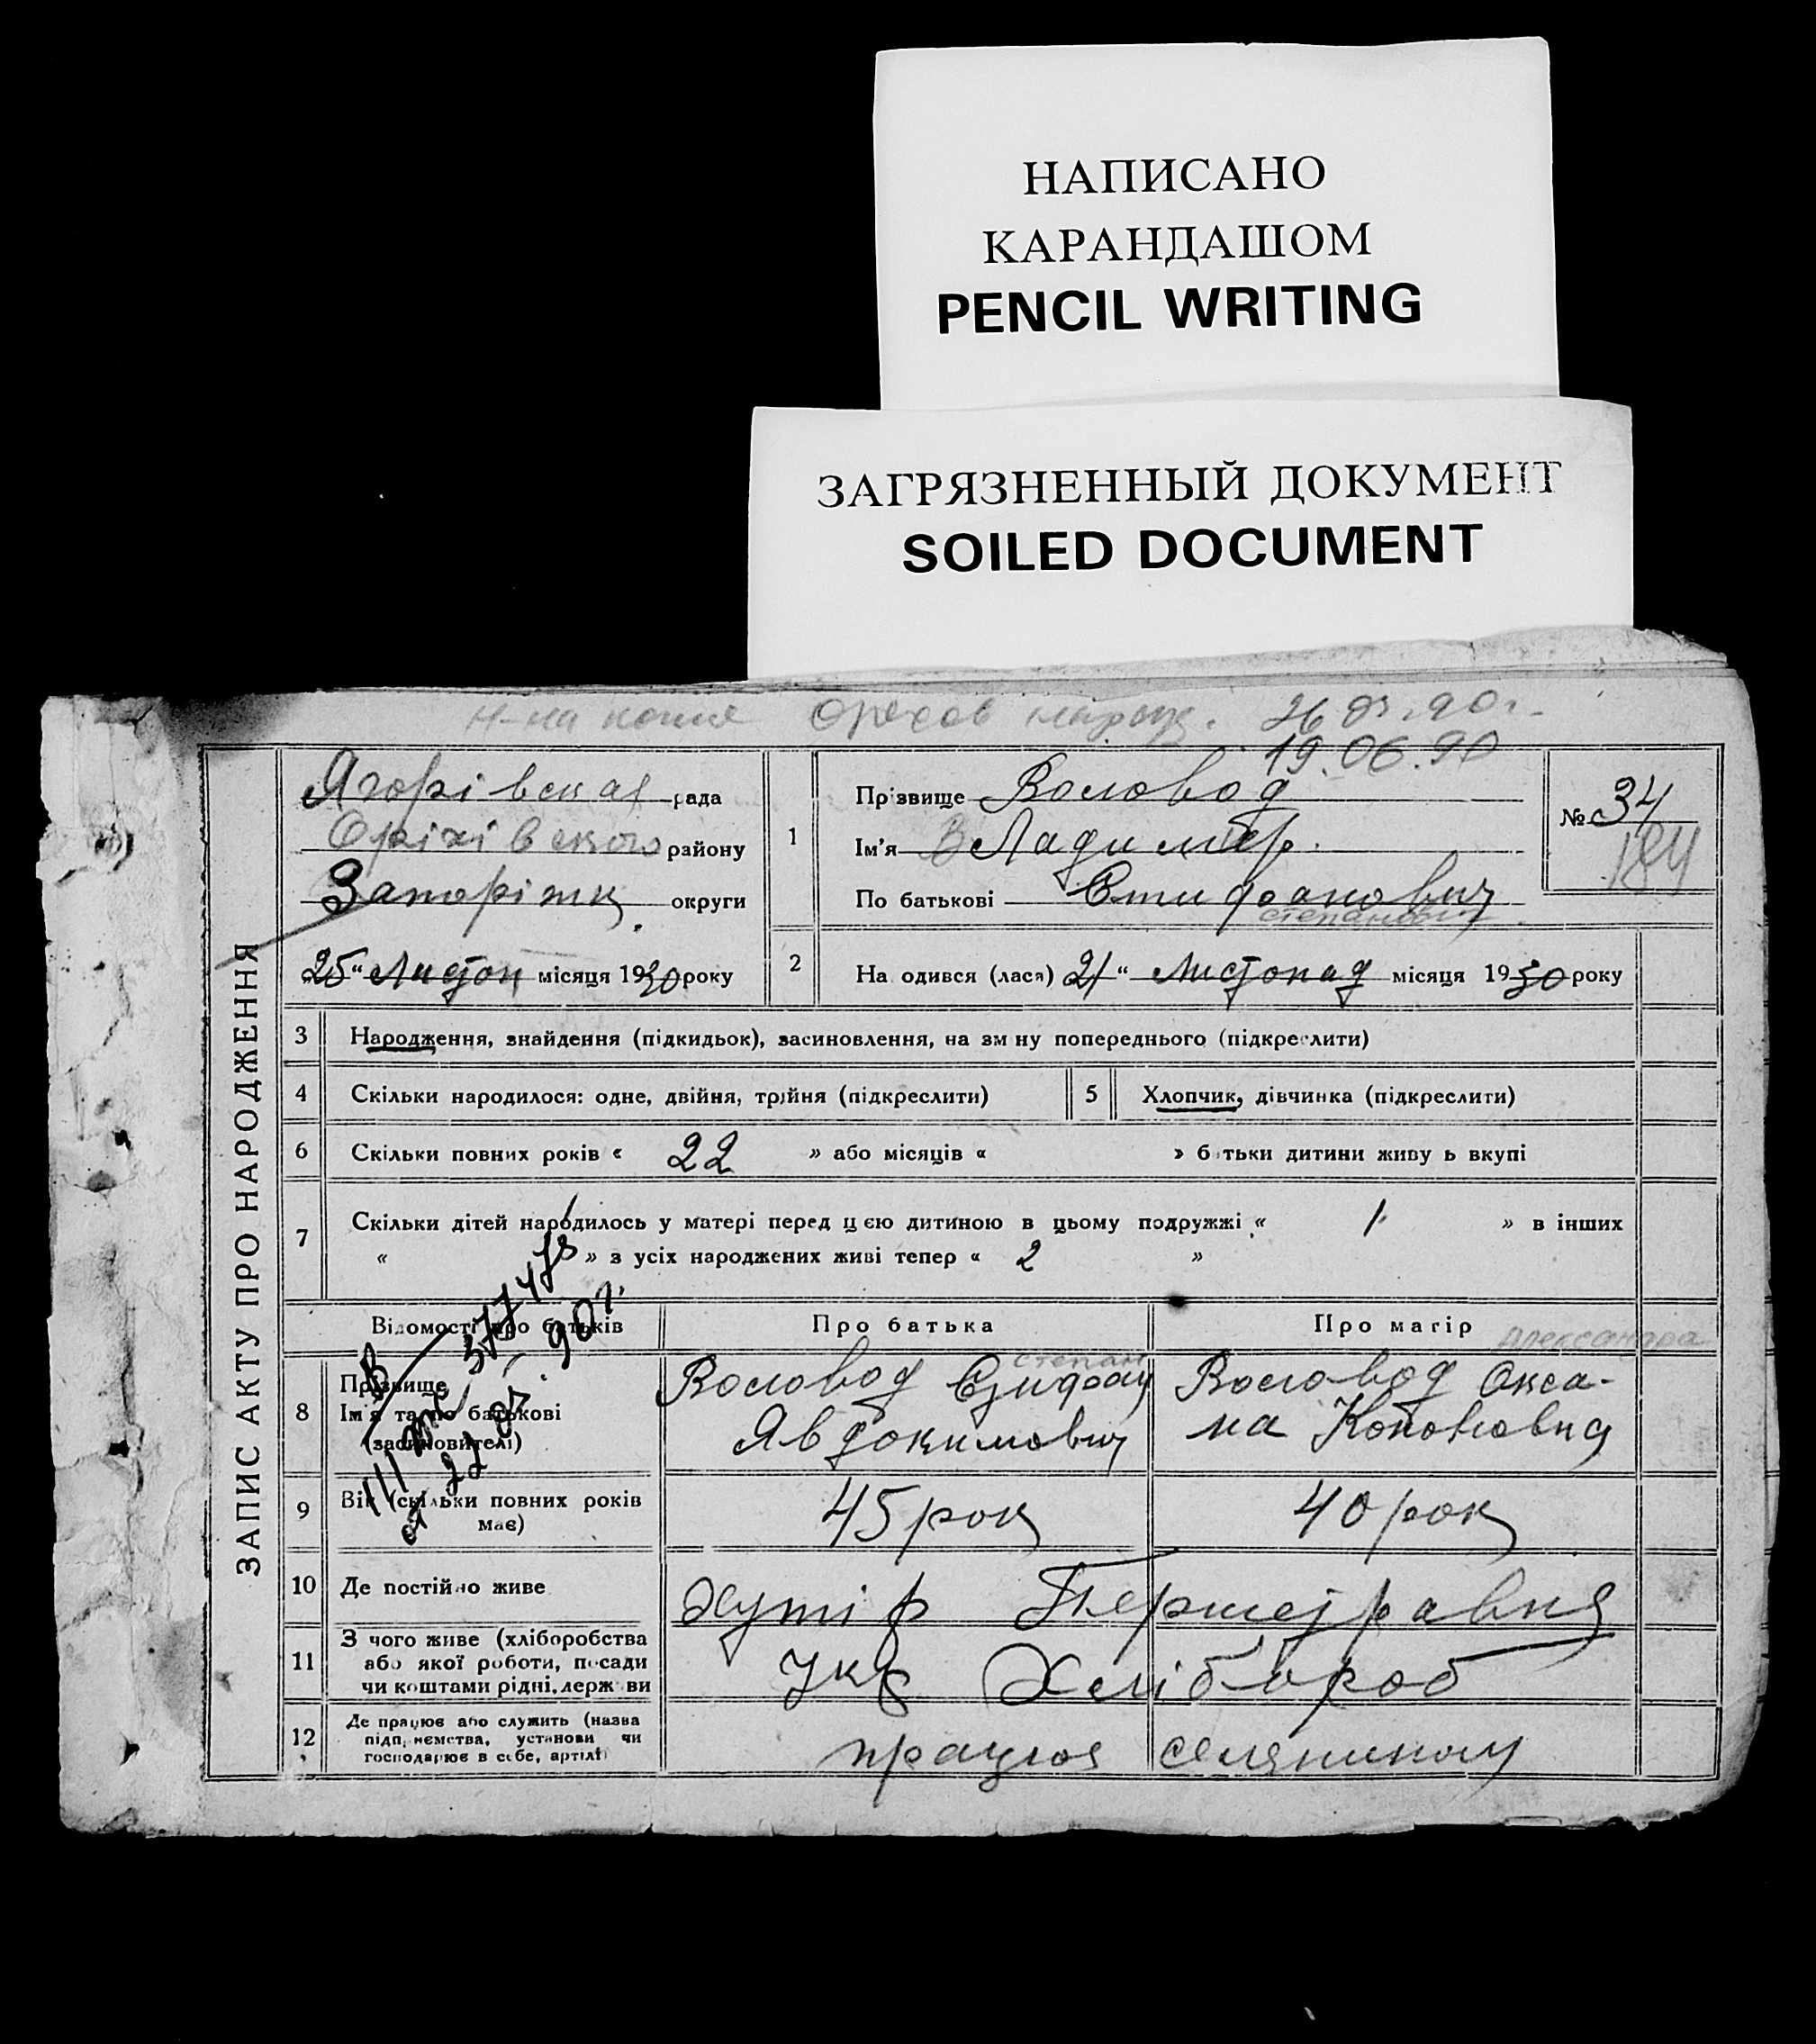 НАПИСАНО
КАРАНДАШОМ
PENCIL WRITING
ЗАГРЯЗНЕННЫЙ ДОКУМЕНТ
SOILED DOCUMENT
Орехов 26 03.90г.
19.06.90
ЗАПИС АКТУ ПРО НАРОДЖЕННЯ
Ягорівская рада
Оріхівского району
Запоріжц. округи
25 “ Листоп місяця 1930 року
1
Прізвище Воловод
Ім'я ВЛадимер.
По батькові Стифоанович
степанович
№ 34
184
2
На одився (лася) 21 “ Листопад місяця 1930 року
3 Народження, знайдення (підкидьок), засиновлення, на зм ну попереднього (підкреслити)
4 Скільки народилося: одне, двійня, трійня (підкреслити) 5 Хлопчик, дівчинка (підкреслити)
6 Скільки повних років « 22 » або місяців « » б тьки дитини живу ь вкупі
7 Скільки дітей народилось у матері перед цією дитиною в цьому подружжі « 1 » в інших
« » з усіх народжених живі тепер « 2 »
Відомості про батьків Про батька Про матір
степан Александра
8 Прізвище
Ім'я та по батькові
(засиновителі)
Воловод Стифоан
Явдокимович
Воловод Окса-
на Кононовна
9 Вік (скільки повних років
має)
45 рок 40 рок
10 Де постійно живе хутір
11 З чого живе (хліборобства
або якої роботи, посади
чи коштами рідні, держ ви
укр Хлібороб
12 Де працює або служить (назва
підприємства, установи чи
господарює в себе, артілі)
працює